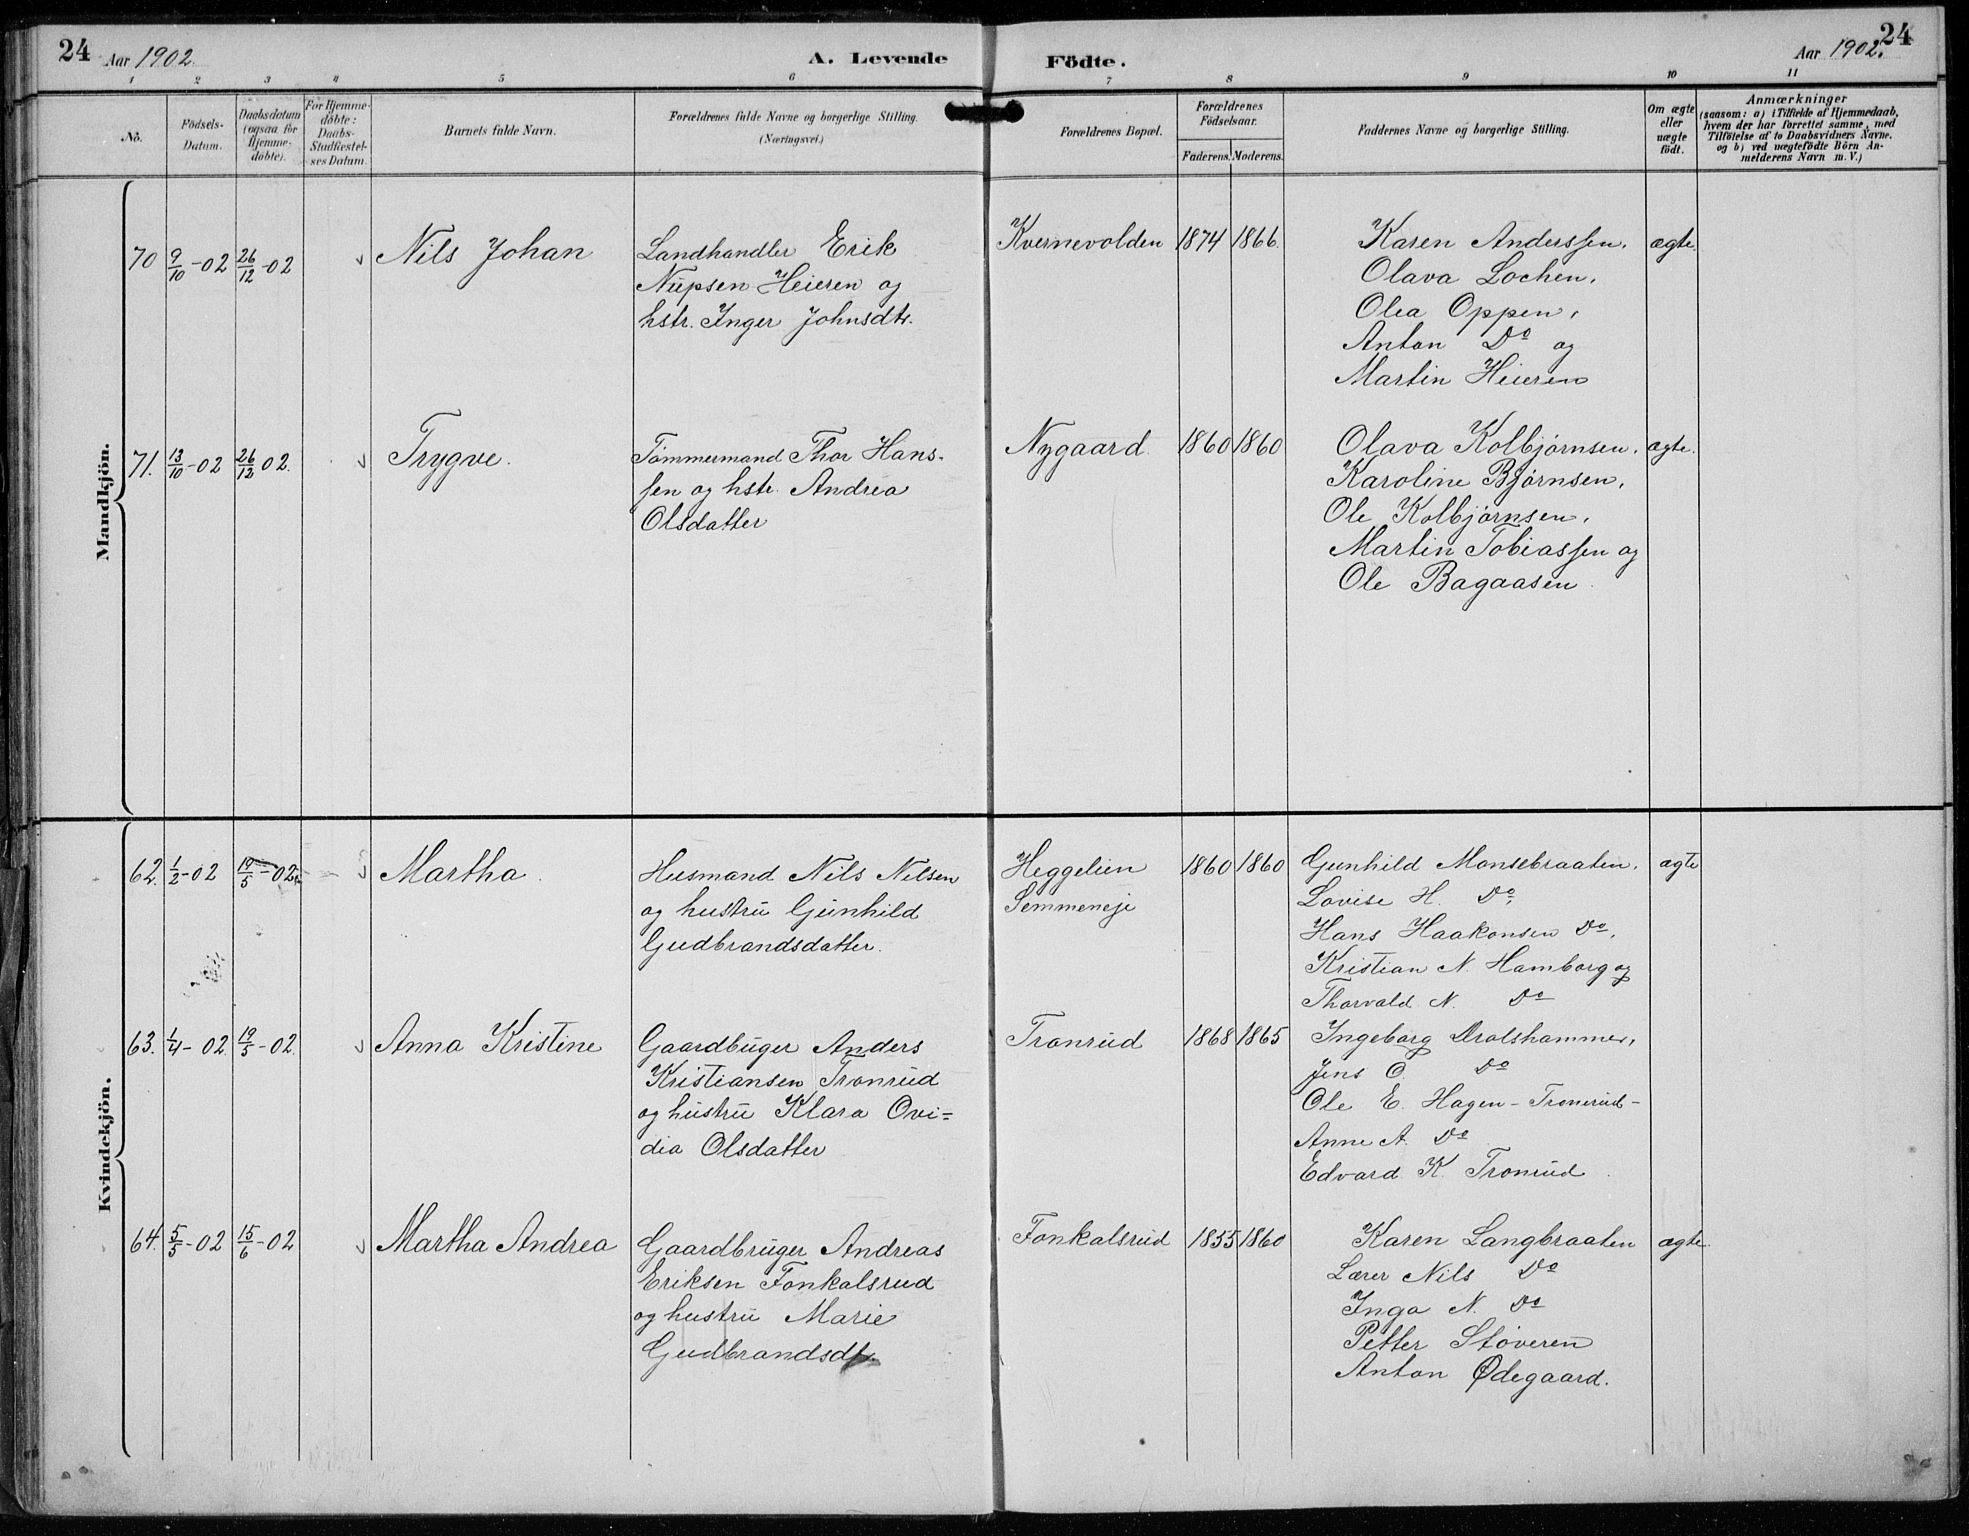 24 Aar 1902. A. Levende Födte. Aar 1902. 24
1 2 3 4 5 6 7 8 9 10 11
No.
Födsels-
Datum.
Daabsdatum
(ogsaa for
Hjemme-
döbte).
For Hjemme-
döbte:
Daabs-
Stadfæstel-
ses Datum.
Barnets fulde Navn.
Forældrenes fulde Navne og borgerlige Stilling.
(Næringsvei.)
Forældrenes Bopæl.
Forældrenes
Födselsaar.
Faderens. Moderens.
Faddernes Navne og borgerlige Stilling.
Om ægte
eller
uægte
födt.
Anmærkninger
(saasom: a) i Tilfælde af Hjemmedaab,
hvem der har forrettet samme, med
Tilföielse af to Daabsvidners Navne.
og b) ved uægtefödte Börn An-
melderens Navn m. V.)
Mandkjön.
70 9/10-02 26/12-02 Nils Johan
Landhandler Erik
Nupsen Heieren og
hstr. Inger Johnsdtr.
Kvernevolden 1874 1866.
Karen Anderssen.
Olava Lochen.
Olea Oppen,
Anton Do og
Martin Heieren
ægte
71. 13/10-02 26/12 02. Trygve.
Tömmermand Thor Hans-
sen og hstr. Andrea
Olsdatter
Nygaard. 1860 1860
Olava Kolbjørnsen.
Karoline Bjørnsen.
Ole Kolbjørnsen.
Martin Tobiassen og
Ole Bagaasen
ægte.
Kvindekjön.
62. 1/2-02 19/5-02. Martha.
Husmand Nils Nilsen
og hustru Gunhild
Gudbrandsdatter.
Heggelien
Semmeneje
1860 1860
Gunhild Monsebraaten.
Lovise H. Do,
Hans Haakonsen Do.
Kristian N. Hamborg og
Thorvald N. Do
ægte
63. 1/4-02. 19/5-02. Anna Kristine
Gaardbuger Anders
Kristiansen Tronrud
og hustru Klara Ovi=
dia Olsdatter
Tronrud 1868 1865
Ingeborg Drolshammer,
Jens O. Do
Ole E. Hagen-Tronerud-
Anne A. Do
Edvard K. Tronrud
64. 5/5-02 15/6-02 Martha Andrea
Gaardbruger Andreas
Eriksen Fonkalsrud
og hustru Marie
Gudbrandsdt.
Fonkalsrud 1855 1860
Karen Langbraaten
Lærer Nils Do
Inga N. Do
Petter Støveren
Anton Ødegaard.
ægte.